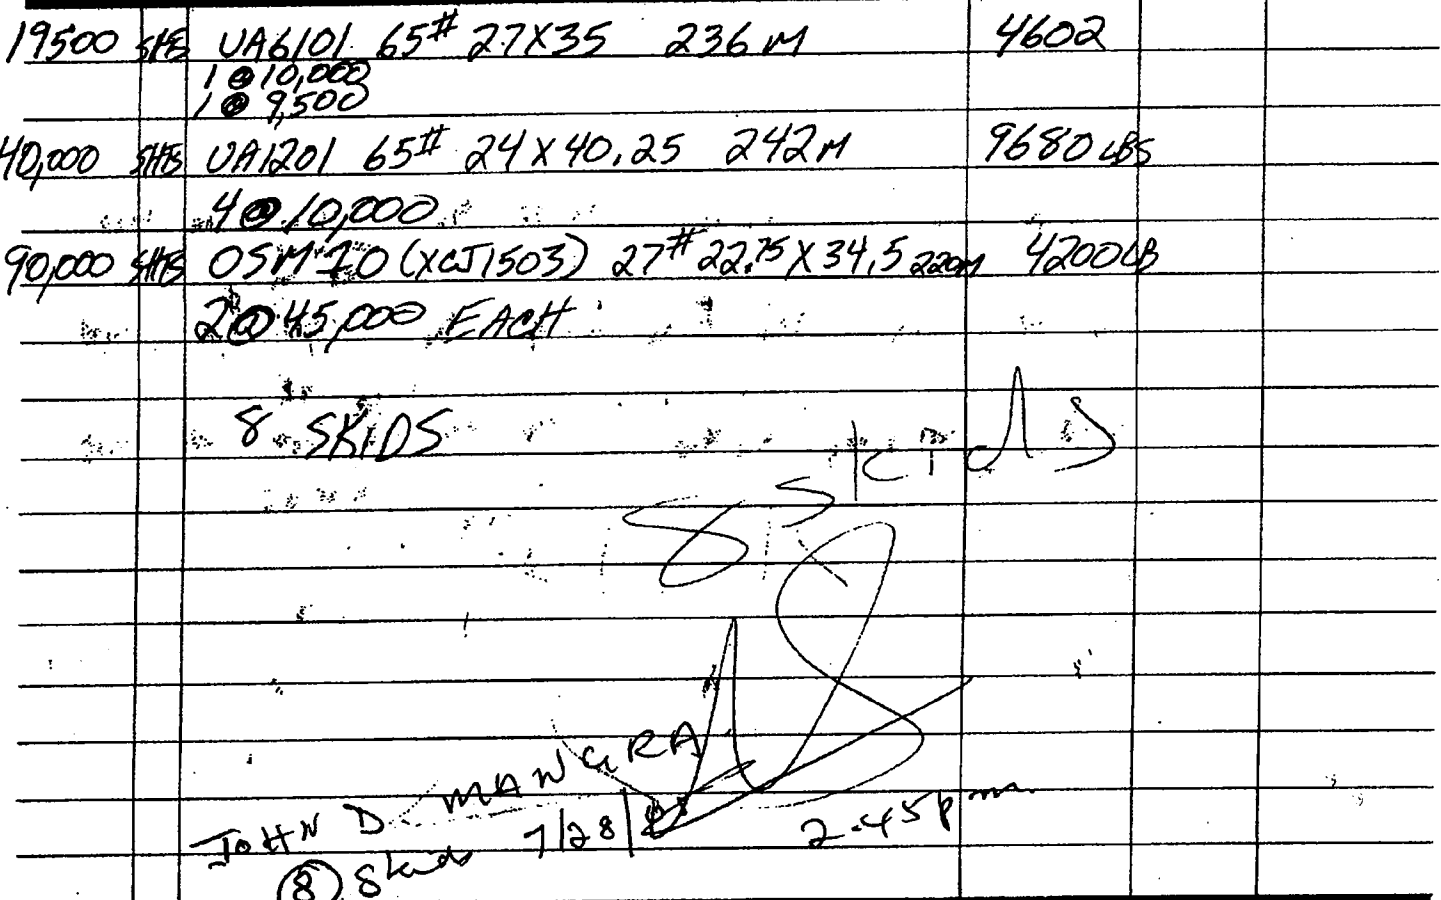 19500 SHTS UA6101 65# 27X35 236M 4602
1 @ 10,000
1 @ 9,500
40,000 SHTS UA1201 65# 24 X 40.25 242M 9680 LBS
4 @ 10,000
90,000 SHTS OSM70 (XCJ1503) 27# 22.75 X 34.5 220M 4200LB
2 @ 45,000 EACH
8 SKIDS
8 SKIDS
JOHN D. MANGRA
7/28/ 2.45 pm.
(8) Skids